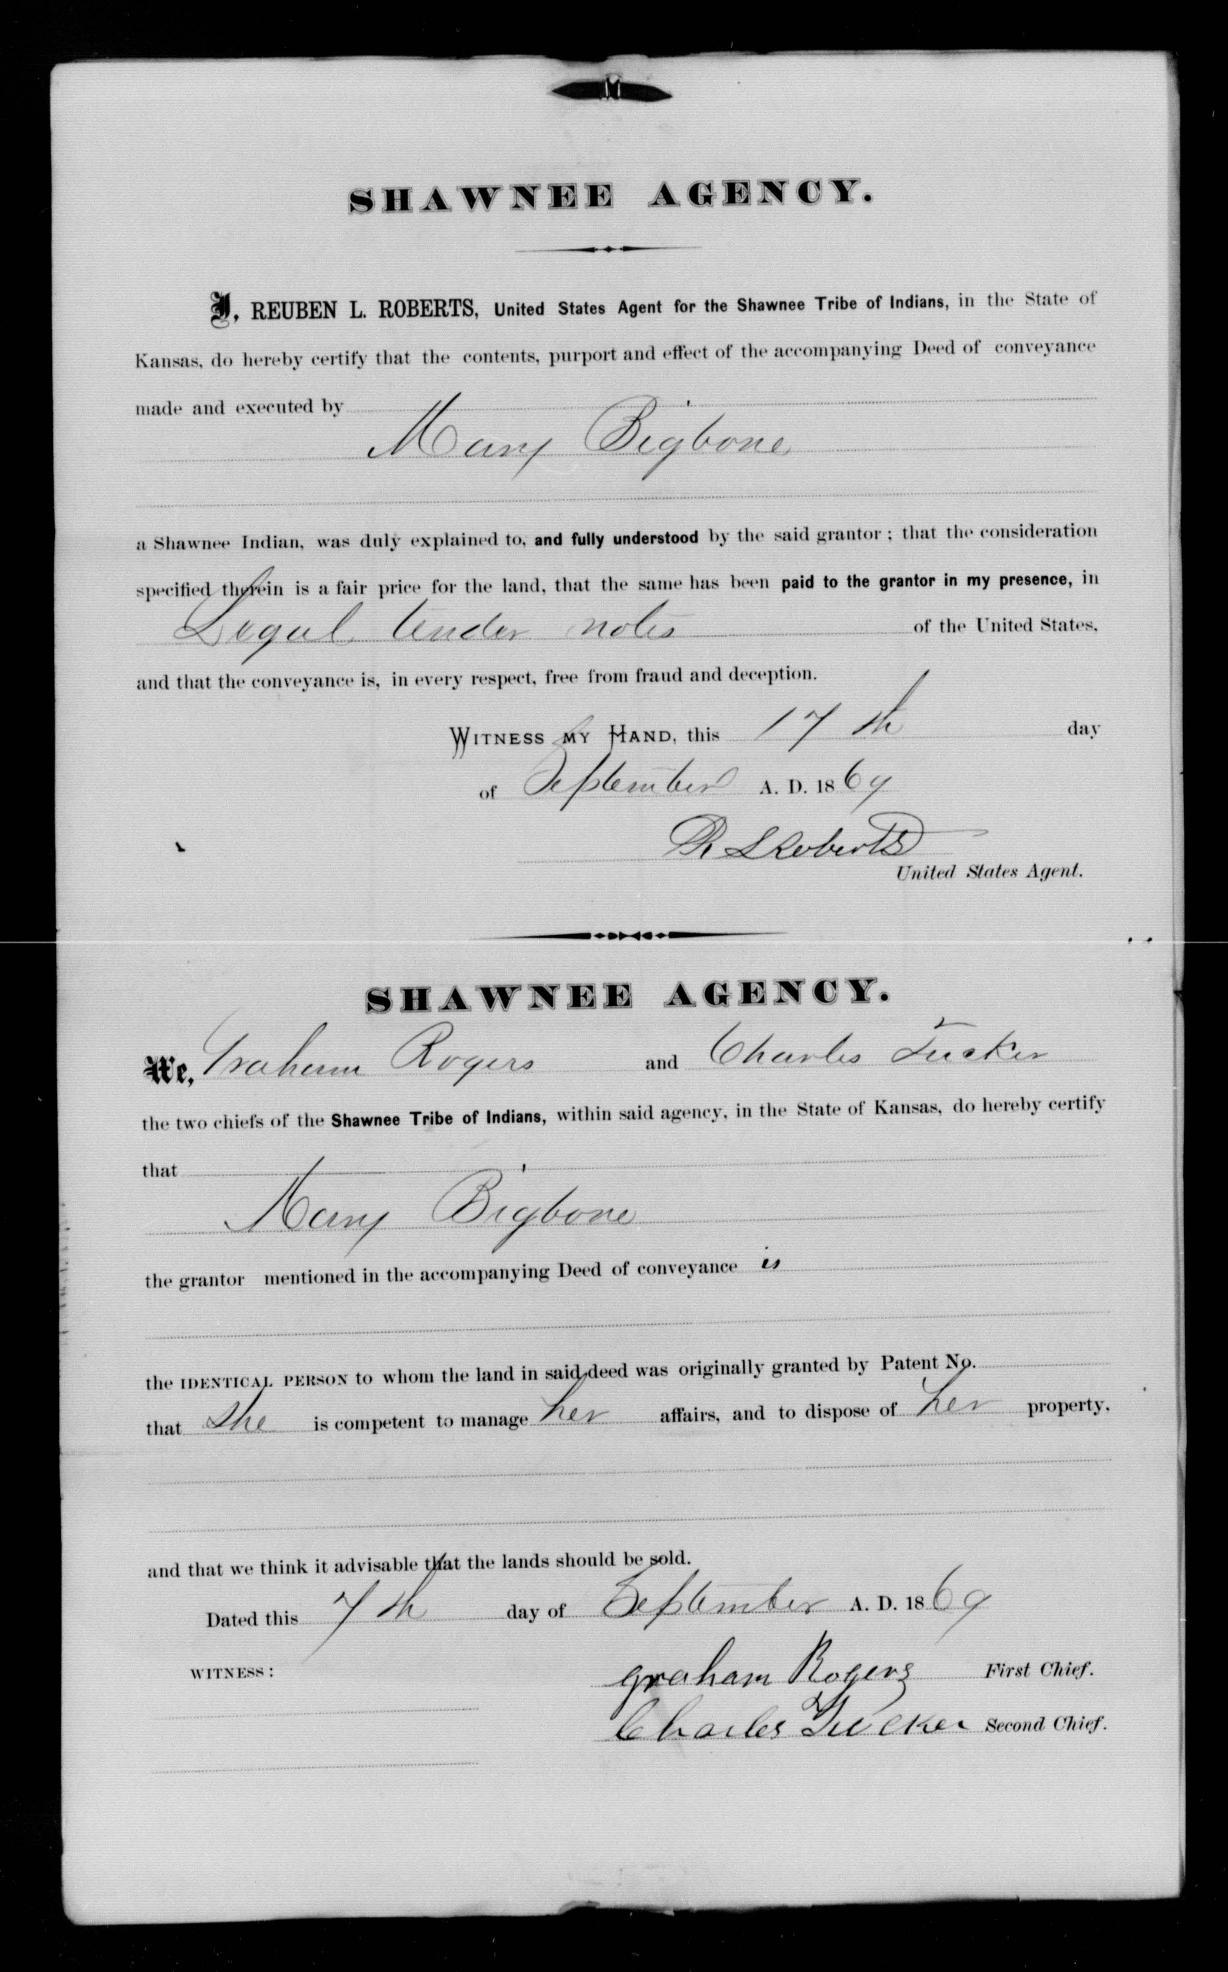 SHAWNEE AGENCY.
I, REUBEN L. ROBERTS, United States Agent for the Shawnee Tribe of Indians, in the State of
Kansas, do hereby certify that the contents, purport and effect of the accompanying Deed of conveyance
made and executed by
Mary Bigbone
a Shawnee Indian, was duly explained to, and fully understood by the said grantor; that the consideration
specified therein is a fair price for the land, that the same has been paid to the grantor in my presence, in
Legal tender notes of the United States,
and that the conveyance is, in every respect, free from fraud and deception.
WITNESS MY HAND, this 17th day
of September A. D. 1869
R L Roberts
United States Agent.
SHAWNEE AGENCY.
We, Graham Rogers and Charles Tucker
the two chiefs of the Shawnee Tribe of Indians, within said agency, in the State of Kansas, do hereby certify
that
Mary Bigbone
the grantor mentioned in the accompanying Deed of conveyance is
the IDENTICAL PERSON to whom the land in said deed was originally granted by Patent No.
that she is competent to manage her affairs, and to dispose of her property,
and that we think it advisable that the lands should be sold.
Dated this 7th day of September A. D. 1869
WITNESS: graham Rogers First Chief.
Charles Tucker Second Chief.